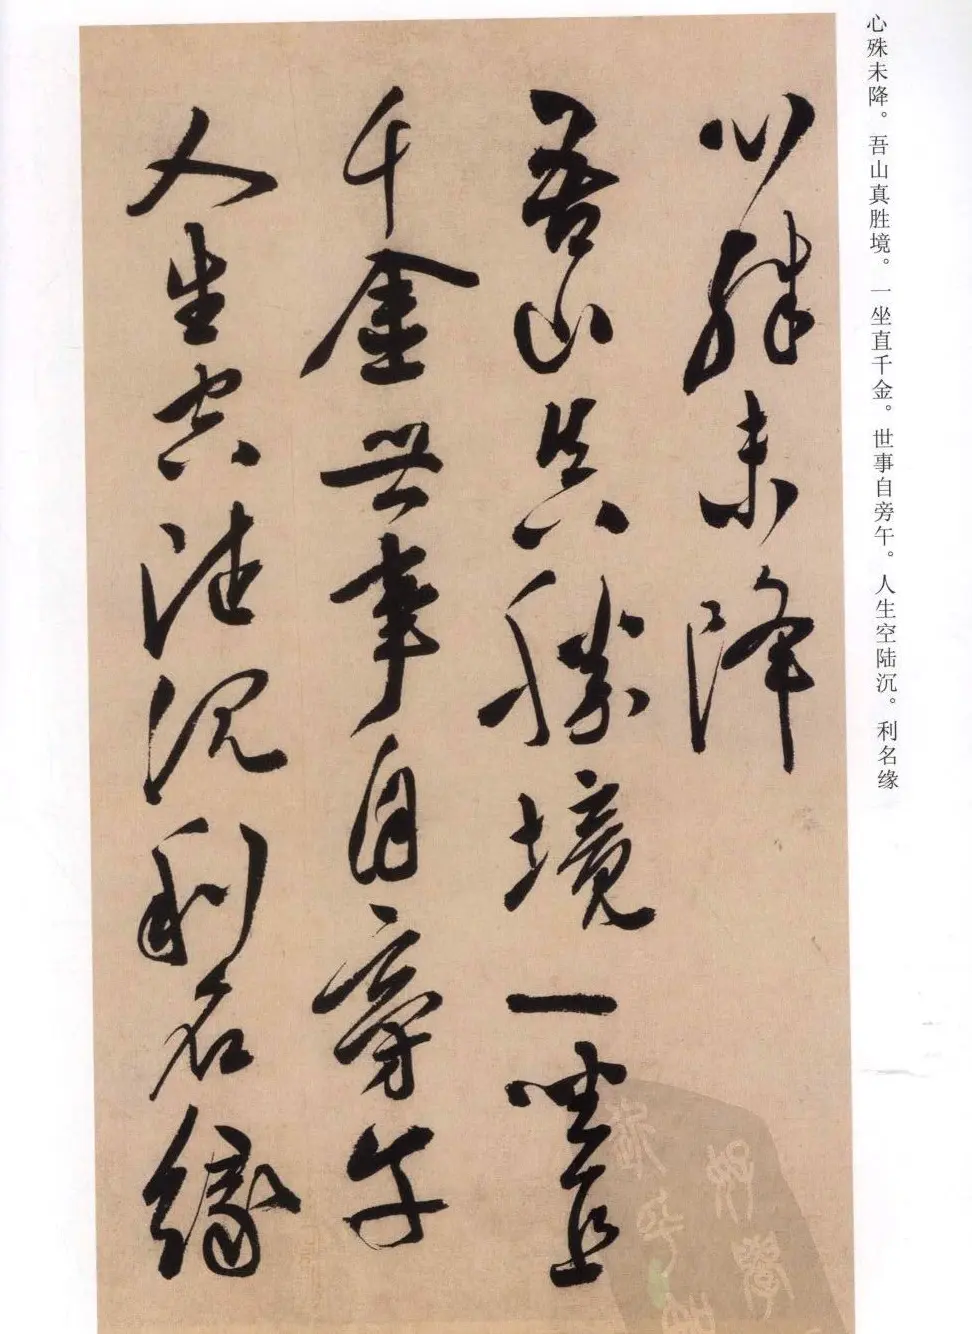 心殊未降。吾山真胜境。一坐直千金。世事自旁午。人生空陆沉。利名缘
心殊未降
吾山真勝境一坐直
千金世事自旁午
人生空陸沉利名緣